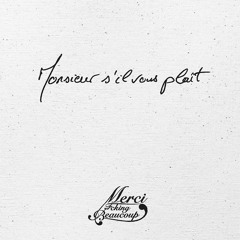 Monsieur s'il vous plaît
Merci
Fcking
Beaucoup